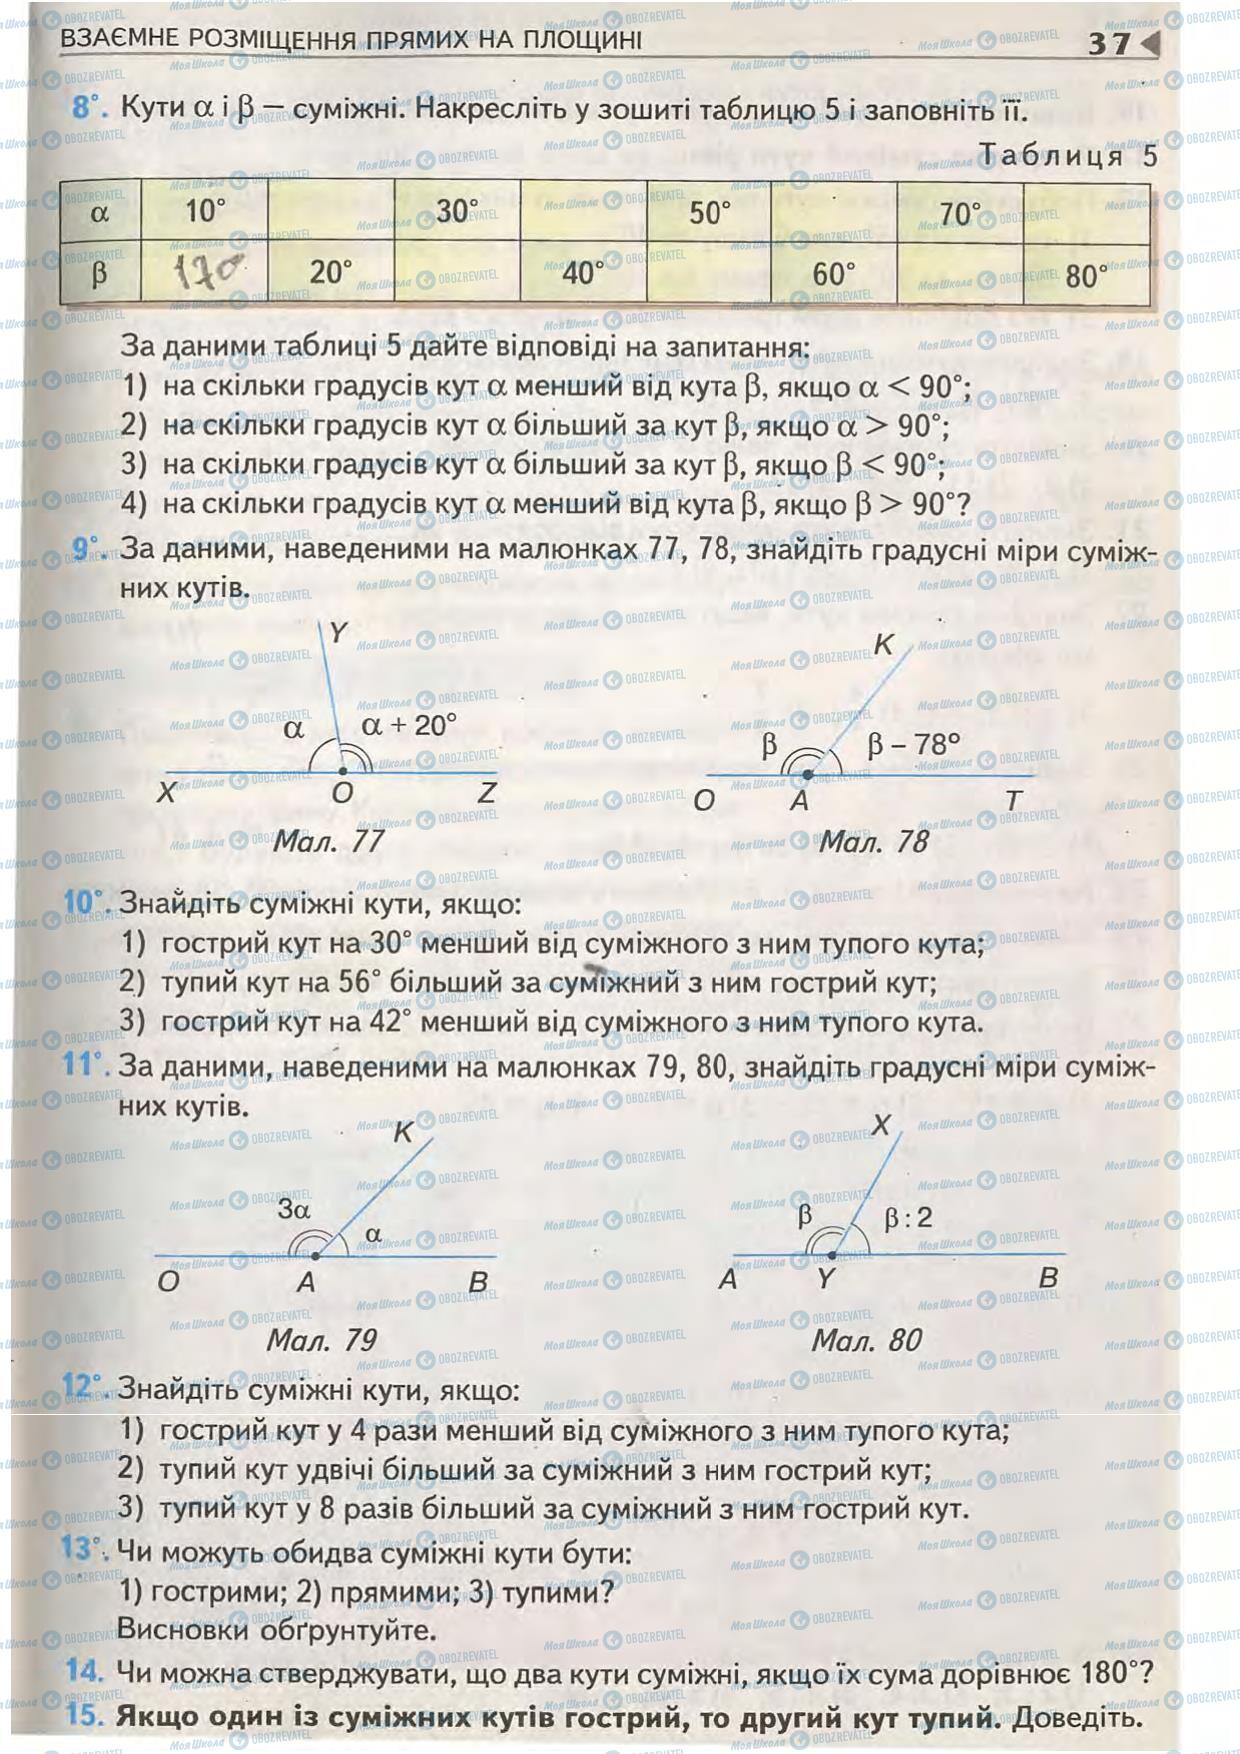 ВЗАЄМНЕ РОЗМІЩЕННЯ ПРЯМИХ НА ПЛОЩИНІ 37
8°. Кути α і β — суміжні. Накресліть у зошиті таблицю 5 і заповніть її.
Таблиця 5
α 10° 30° 50° 70°
β 170 20° 40° 60° 80°
За даними таблиці 5 дайте відповіді на запитання:
1) на скільки градусів кут α менший від кута β, якщо α < 90°;
2) на скільки градусів кут α більший за кут β, якщо α > 90°;
3) на скільки градусів кут α більший за кут β, якщо β < 90°;
4) на скільки градусів кут α менший від кута β, якщо β > 90°?
9°. За даними, наведеними на малюнках 77, 78, знайдіть градусні міри суміж-
них кутів.
Y K
α α + 20° β β – 78°
X O Z O A T
Мал. 77 Мал. 78
10°. Знайдіть суміжні кути, якщо:
1) гострий кут на 30° менший від суміжного з ним тупого кута;
2) тупий кут на 56° більший за суміжний з ним гострий кут;
3) гострий кут на 42° менший від суміжного з ним тупого кута.
11°. За даними, наведеними на малюнках 79, 80, знайдіть градусні міри суміж-
них кутів.
K X
3α α β β : 2
O A B A Y B
Мал. 79 Мал. 80
12°. Знайдіть суміжні кути, якщо:
1) гострий кут у 4 рази менший від суміжного з ним тупого кута;
2) тупий кут удвічі більший за суміжний з ним гострий кут;
3) тупий кут у 8 разів більший за суміжний з ним гострий кут.
13°. Чи можуть обидва суміжні кути бути:
1) гострими; 2) прямими; 3) тупими?
Висновки обґрунтуйте.
14. Чи можна стверджувати, що два кути суміжні, якщо їх сума дорівнює 180°?
15. Якщо один із суміжних кутів гострий, то другий кут тупий. Доведіть.
МояШкола OBOZREVATEL